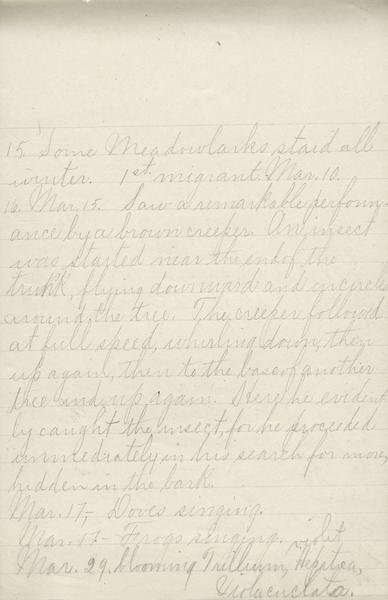 15. Some Meadowlarks staid all
winter. 1st migrant Mar. 10.
16. Mar. 15. Saw a remarkable perform-
ance by a brown creeper. An insect
was started near the end of the
trunk, flying downward and in circles
around the tree. The creeper followed
at full speed, whirling down, then
up again, then to the base of another
tree and up again. Here he evident-
ly caught the insect, for he proceeded
immediately in his search for more,
hidden in the bark.
Mar. 17,- Doves singing.
Mar. 17- Frogs singing. violet,
Mar. 29. blooming Trillium, Hepatica,